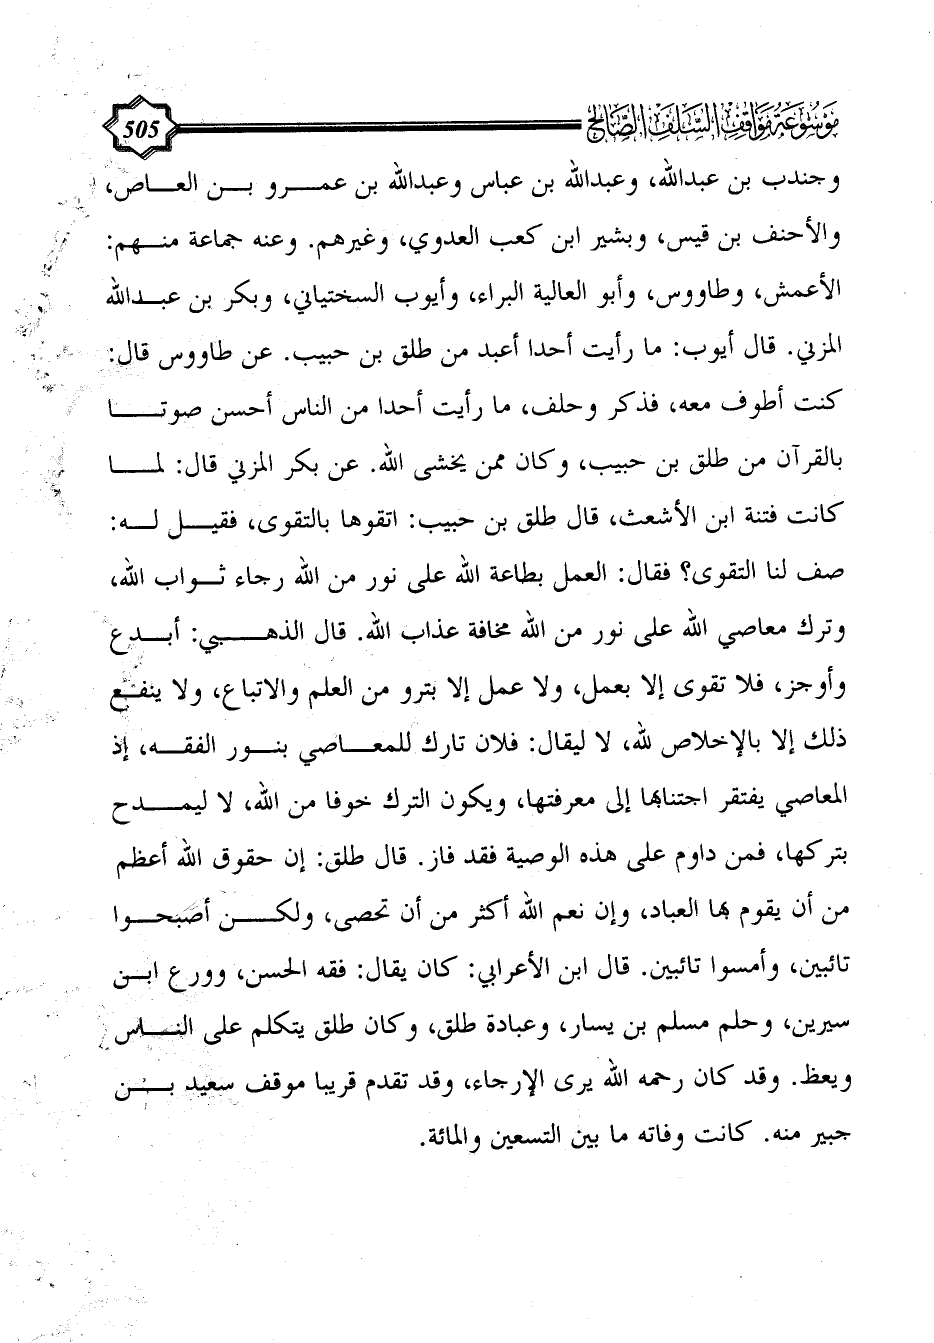 موسوعة مواقف السلف الصالح
505
وجندب بن عبدالله، وعبدالله بن عباس وعبدالله بن عمرو بن العاص،
والأحنف بن قيس، وبشير ابن كعب العدوي، وغيرهم. وعنه جماعة منهم:
الأعمش، وطاووس، وأبو العالية البراء، وأيوب السختياني، وبكر بن عبدالله
المزني. قال أيوب: ما رأيت أحدا أعبد من طلق بن حبيب. عن طاووس قال:
كنت أطوف معه، فذكر وحلف، ما رأيت أحدا من الناس أحسن صوتا
بالقرآن من طلق بن حبيب، وكان ممن يخشى الله. عن بكر المزني قال: لما
كانت فتنة ابن الأشعث، قال طلق بن حبيب: اتقوها بالتقوى، فقيل له:
صف لنا التقوى؟ فقال: العمل بطاعة الله على نور من الله رجاء ثواب الله،
وترك معاصي الله على نور من الله مخافة عذاب الله. قال الذهبي: أبدع
وأوجز، فلا تقوى إلا بعمل، ولا عمل إلا بترو من العلم والاتباع، ولا ينفع
ذلك إلا بالإخلاص لله، لا ليقال: فلان تارك للمعاصي بنور الفقه، إذ
المعاصي يفتقر اجتنابها إلى معرفتها، ويكون الترك خوفا من الله، لا ليمدح
بتركها، فمن داوم على هذه الوصية فقد فاز. قال طلق: إن حقوق الله أعظم
من أن يقوم بها العباد، وإن نعم الله أكثر من أن تحصى، ولكن أصبحوا
تائبين، وأمسوا تائبين. قال ابن الأعرابي: كان يقال: فقه الحسن، وورع ابن
سيرين، وحلم مسلم بن يسار، وعبادة طلق، وكان طلق يتكلم على الناس
ويعظ. وقد كان رحمه الله يرى الإرجاء، وقد تقدم قريبا موقف سعيد بن
جبير منه. كانت وفاته ما بين التسعين والمائة.